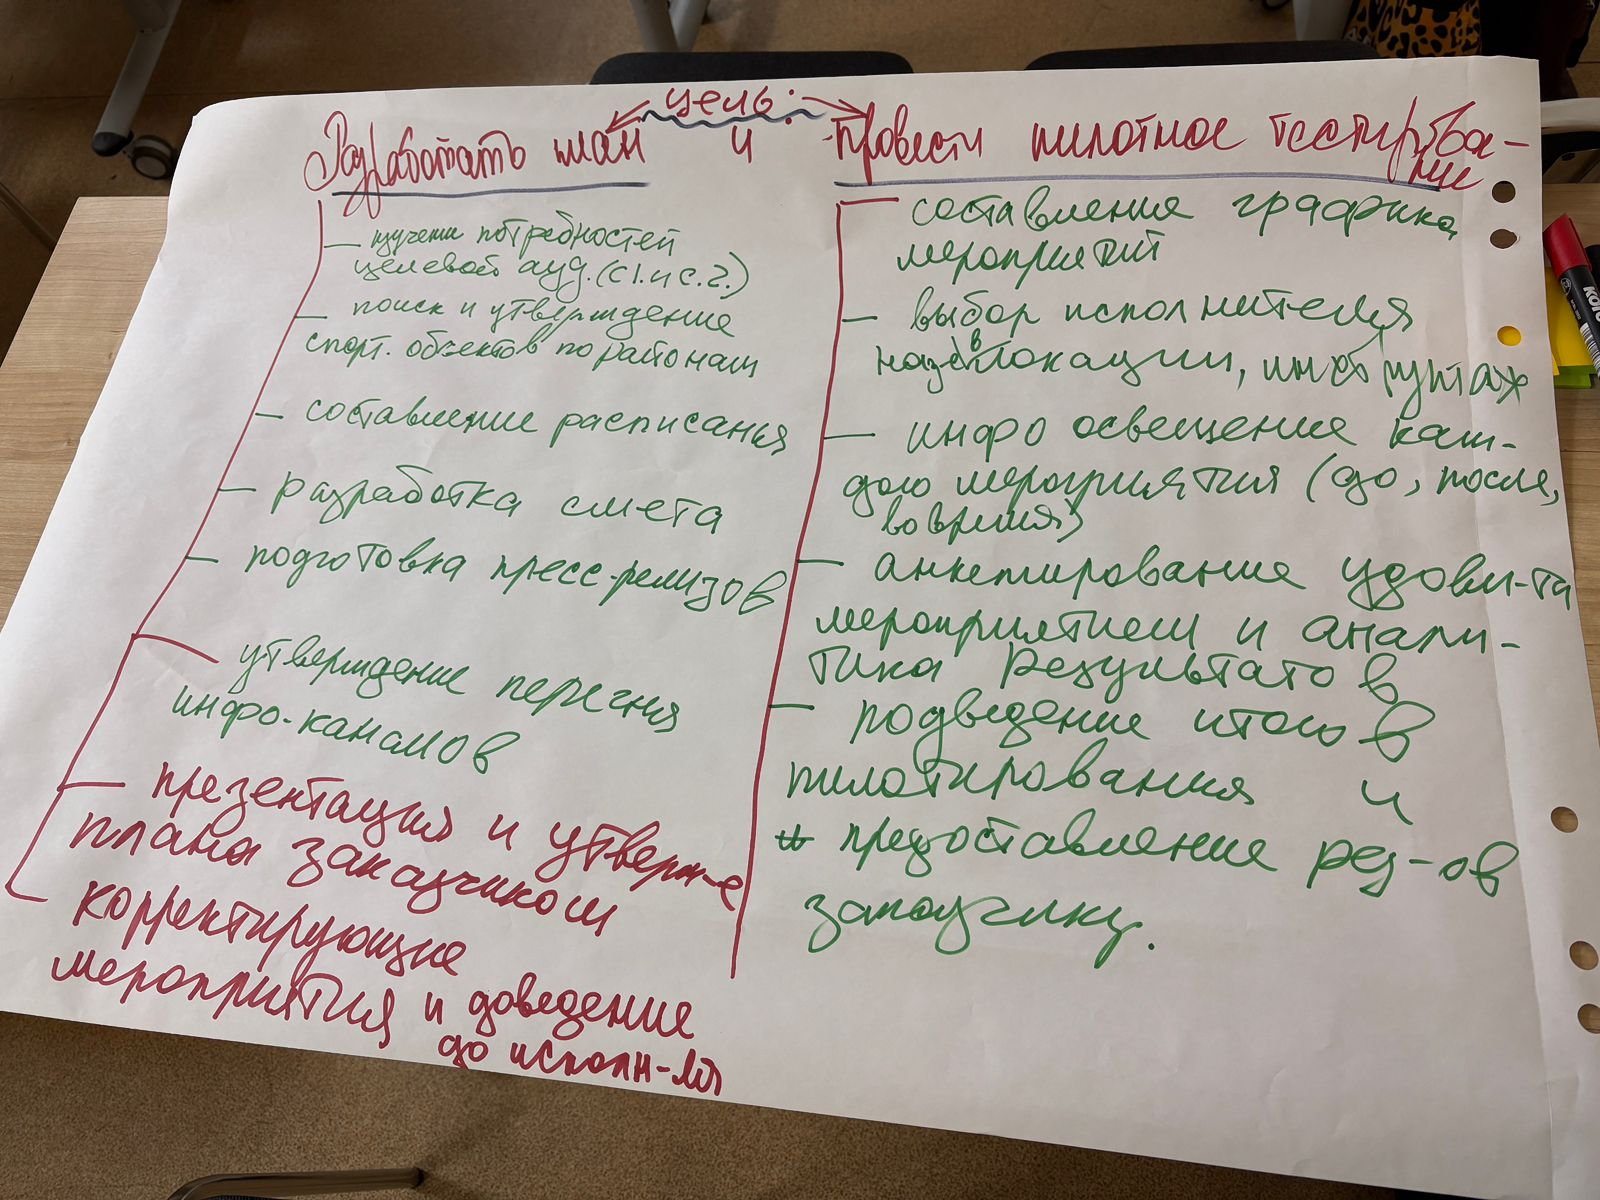 цель:
Разработать план и провести пилотное тестирова-
ние
– изучени потребностей
целевой ауд. (с1. и с.2.)
– поиск и утверждение
спорт. объектов по районам
– составление расписания
– разработка смета
– подготовка пресс-релизов
– утверждение перечня
инфо-каналов
– презентация и утверж-е
плана заказчиком
– корректирующие
мероприятия и доведение
до исполн-ля
– составление графика
мероприятий
– выбор исполнителя
в локации, инструктаж
– инфо освещение каж-
дого мероприятия (до, после,
во время)
– анкетирование удовл-та
мероприятием и анали-
тика результатов
– подведение итогов
пилотирования и
и предоставление рез-ов
заказчику.